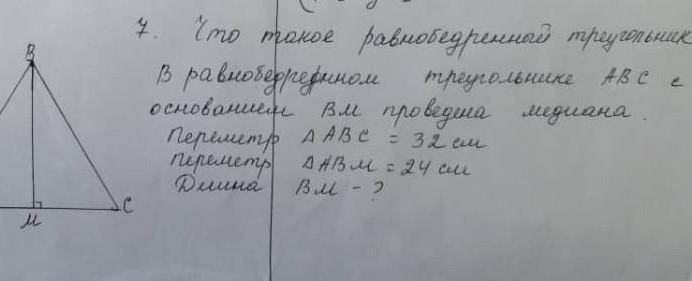 7. Что такое равнобедренный треугольник
В равнобедреннном треугольнике ABC с
основанием BM проведена медиана.
Переметр △ ABC = 32 см
Переметр △ABM = 24 см
Длина BM - ?
B
M
C